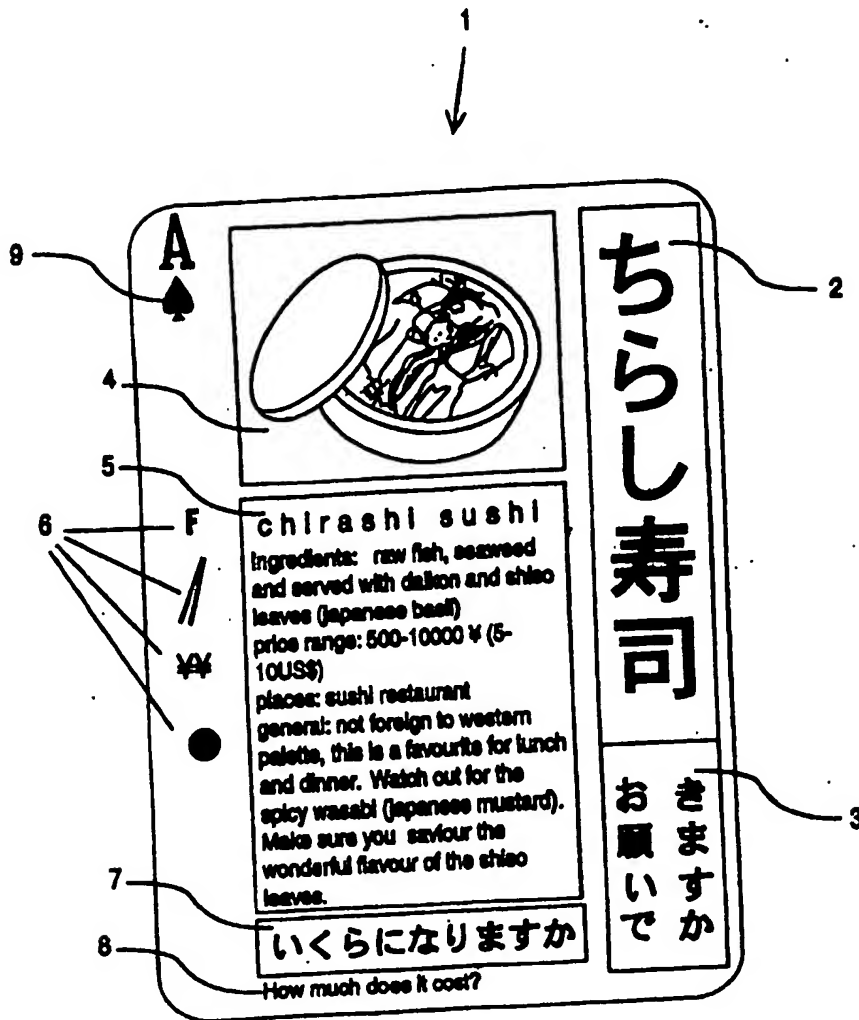 1
A
9
4
5
6
F
¥¥
7
8
2
3
ちらし寿司
お願いで
きますか
chirashi sushi
Ingredients: raw fish, seaweed
and served with daikon and shiso
leaves (japanese basil)
price range: 500-10000 ¥ (5-
10US$)
places: sushi restaurant
general: not foreign to western
palette, this is a favourite for lunch
and dinner. Watch out for the
spicy wasabi (japanese mustard).
Make sure you saviour the
wonderful flavour of the shiso
leaves.
いくらになりますか
How much does it cost?